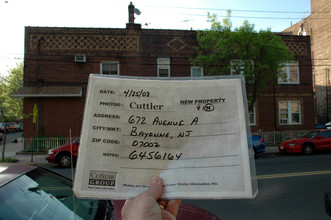 DATE: 4/25/08
PHOTOG: Cuttler NEW PROPERTY
Y N
ADDRESS: 672 AVENUE A
CITY/MKT: BAYONNE, NJ
ZIP CODE: 07002
NOTES: 6456164
COSTAR
GROUP